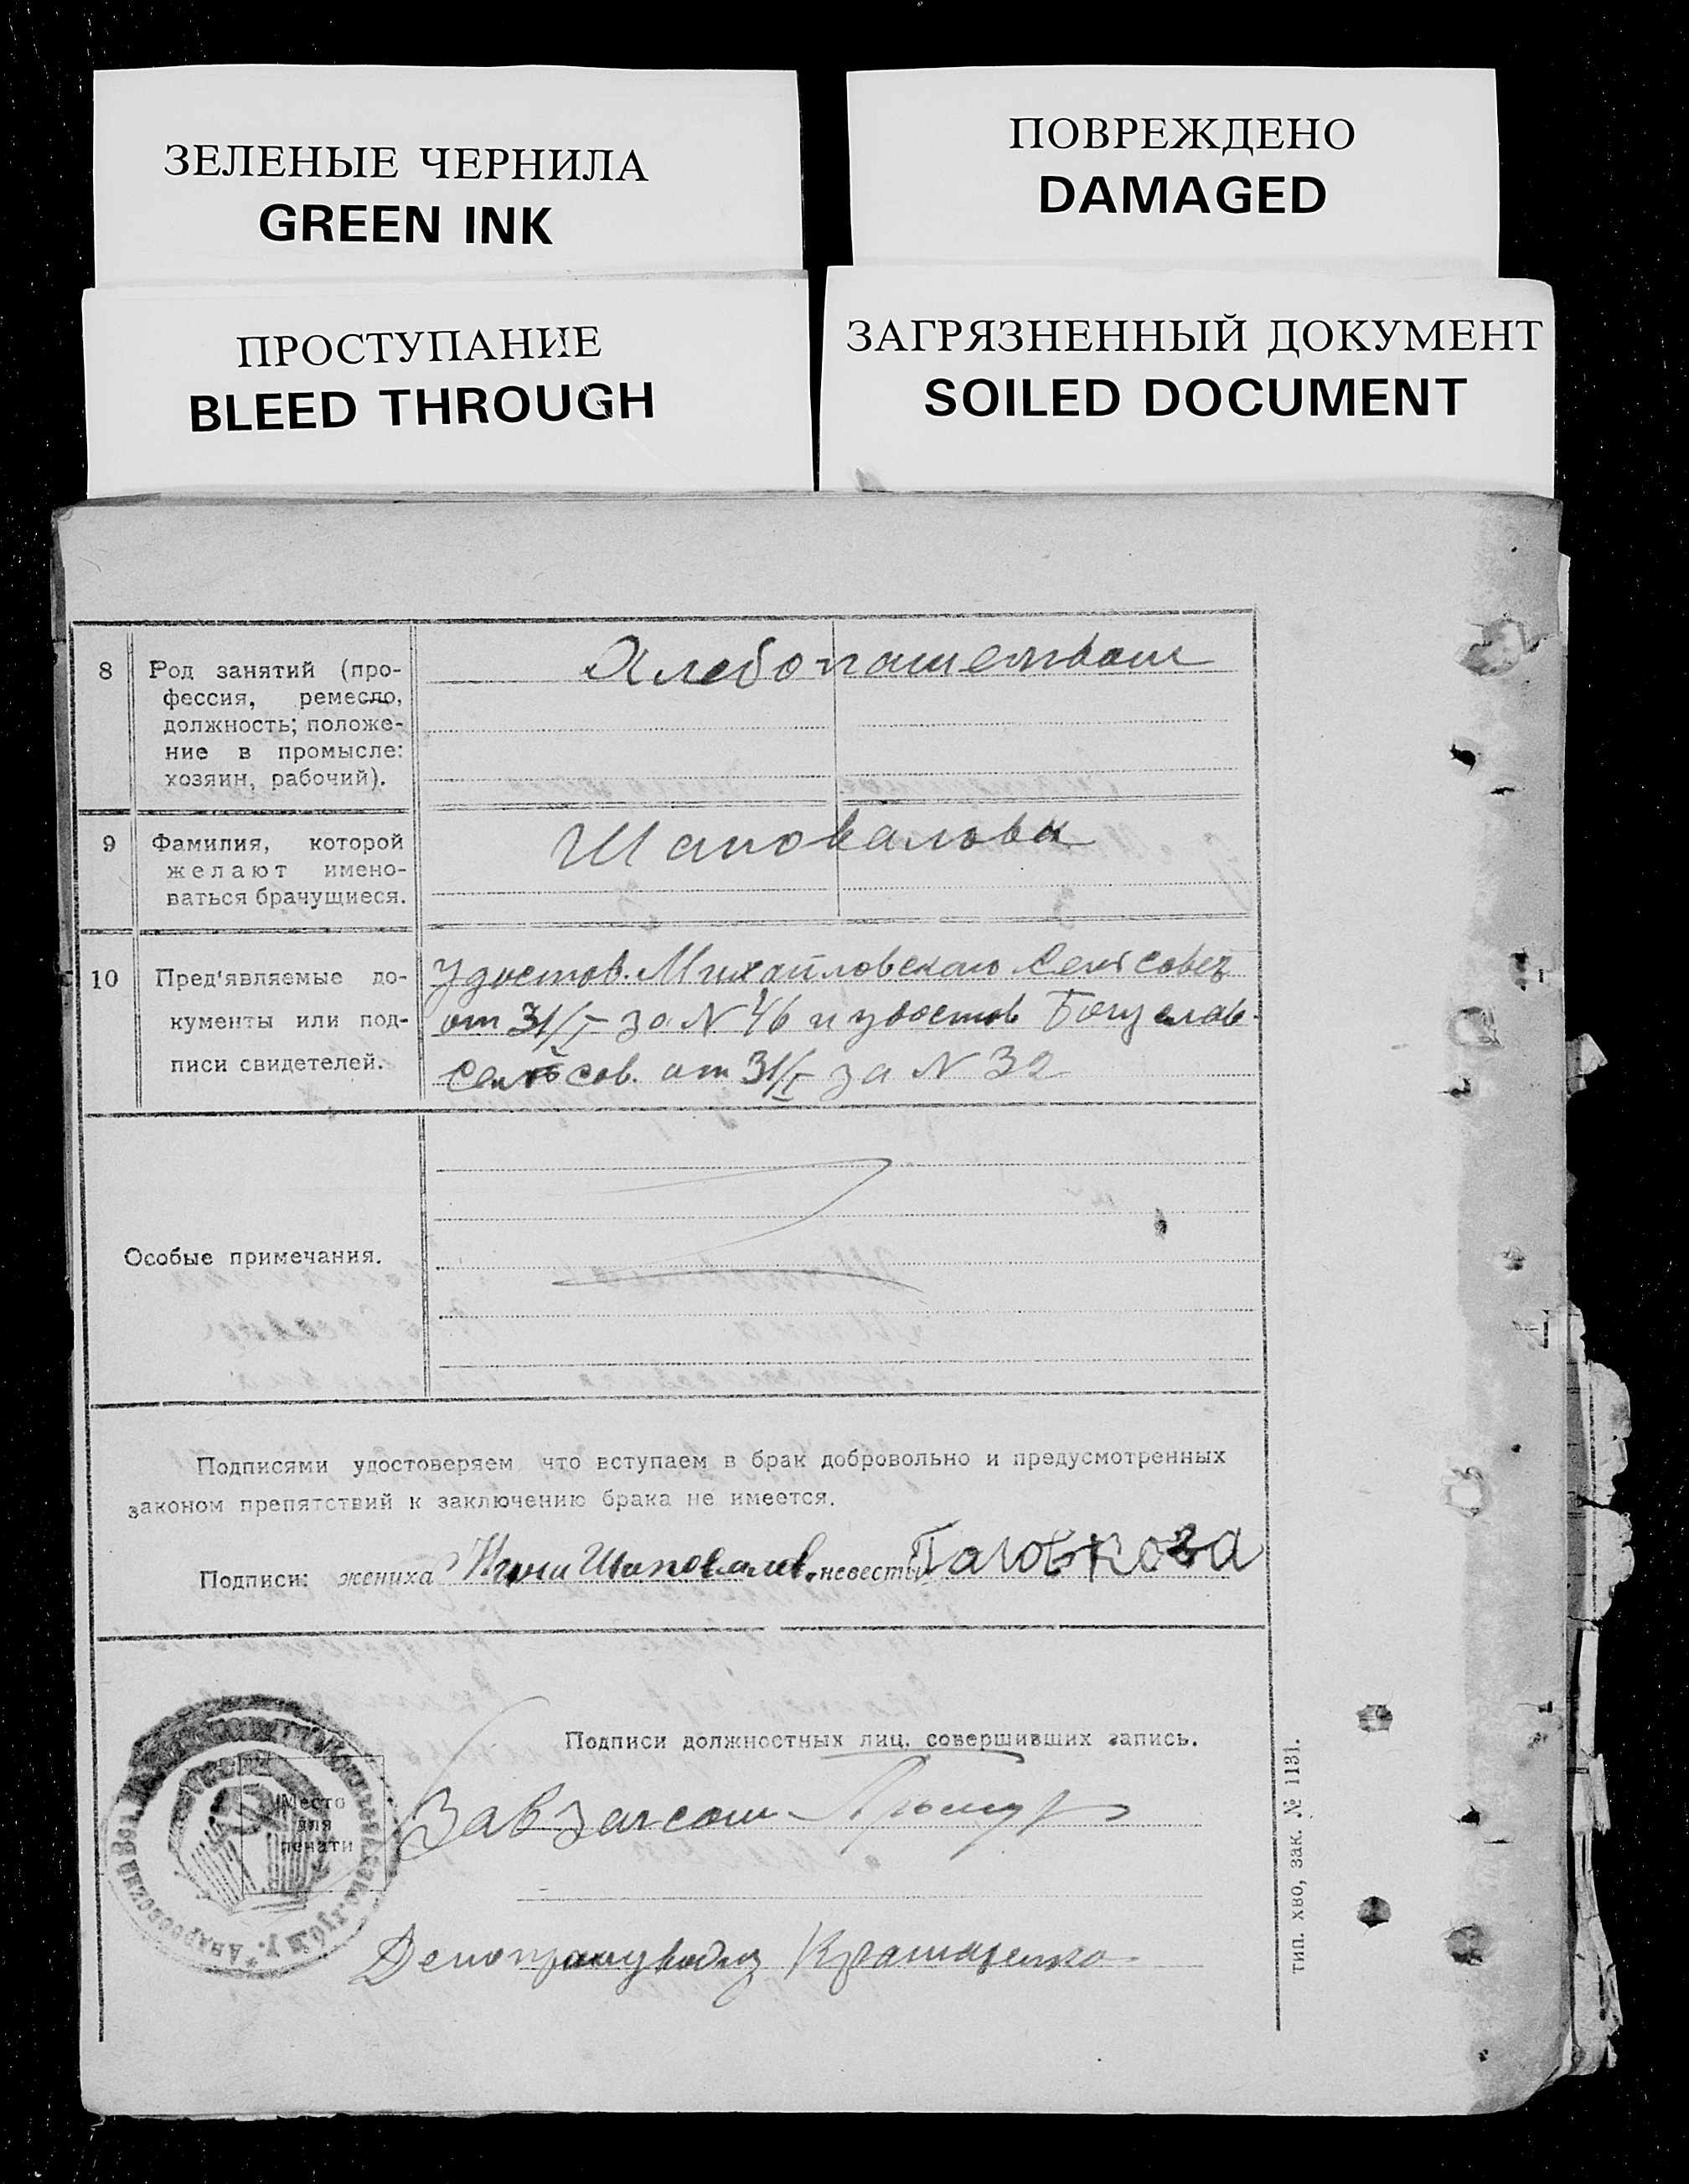 ЗЕЛЕНЫЕ ЧЕРНИЛА
GREEN INK
ПОВРЕЖДЕНО
DAMAGED
ПРОСТУПАНИЕ
BLEED THROUGH
ЗАГРЯЗНЕННЫЙ ДОКУМЕНТ
SOILED DOCUMENT
8 Род занятий (про-
фессия, ремесло,
должность; положе-
ние в промысле:
хозяин, рабочий).
Хлебопашеством
9 Фамилия, которой
желают имено-
ваться брачущиеся.
Шаповалова
10 Пред'являемые до-
кументы или под-
писи свидетелей.
Удостов. Михайловского Сельсовет
от 31/I за N 46 и удостов Богуслав.
Сельсов. от 31/I за N 32
Особые примечания.
Подписями удостоверяем что вступаем в брак добровольно и предусмотренных
законом препятствий к заключению брака не имеется.
Подписи: жениха Шаповалов невесты
Подписи должностных лиц, совершивших запись.
Место
для
печати
Завзагсом
Делопроизвод
тип. ХВО, зак. № 1131.